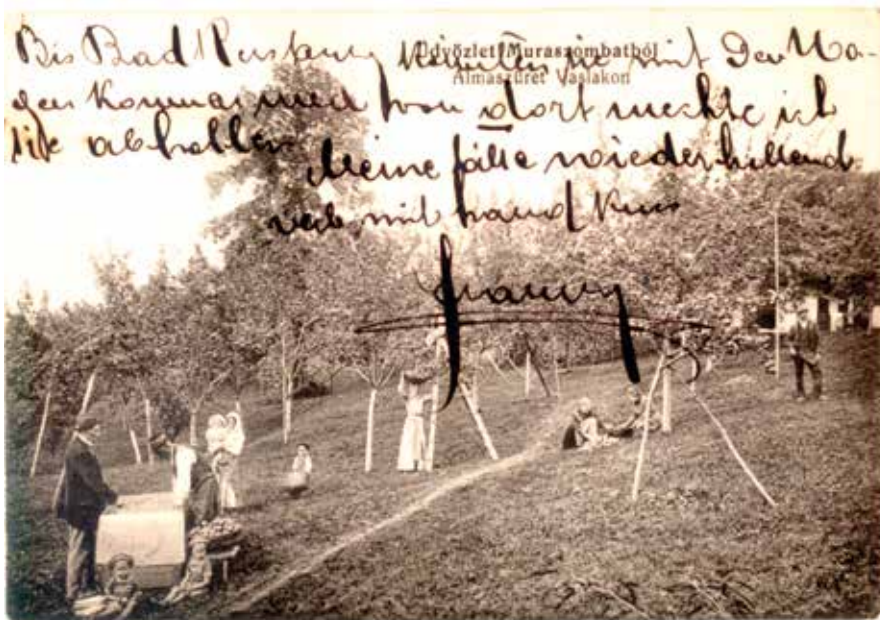 Üdvözlet Muraszombatból
Almaszüret Vaslakon
Bis Bad könnten sie mit Den Wa-
gen kommen von dort mechte ich
Sie abhollen
Meine wiederhollend
mit hand Kuss